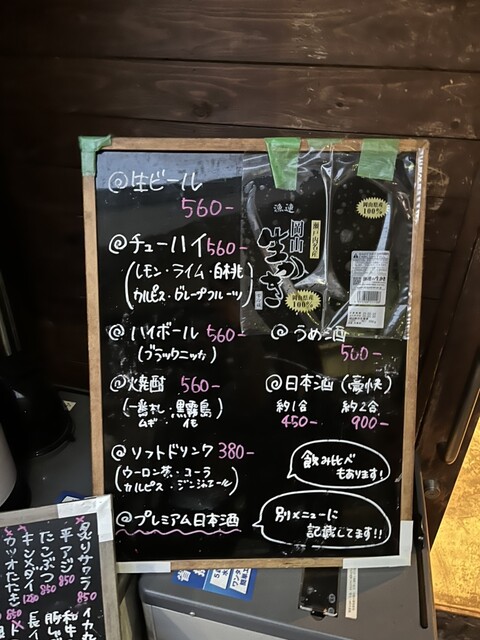 @生ビール
560-
@チューハイ 560-
(レモン・ライム・白桃
カルピス・グレープフルーツ)
@ハイボール 560-
(ブラックニッカ)
@焼酎 560-
(一番札・黒霧島)
ムギ イモ
@ソフトドリンク 380-
(ウーロン茶・コーラ
カルピス・ジンジャエール)
@プレミアム日本酒
@うめ酒
560-
@日本酒(豪快)
約1合 約2合
450- 900-
飲み比べ
もあります!
別メニューに
記載してます!!
漁連
岡山
瀬戸内名産
岡山県産
100%
岡山県産
100%
炙りサワラ
850
平アジ
850
たこぶつ
850
キンメダイ
1280
カツオたたき
850